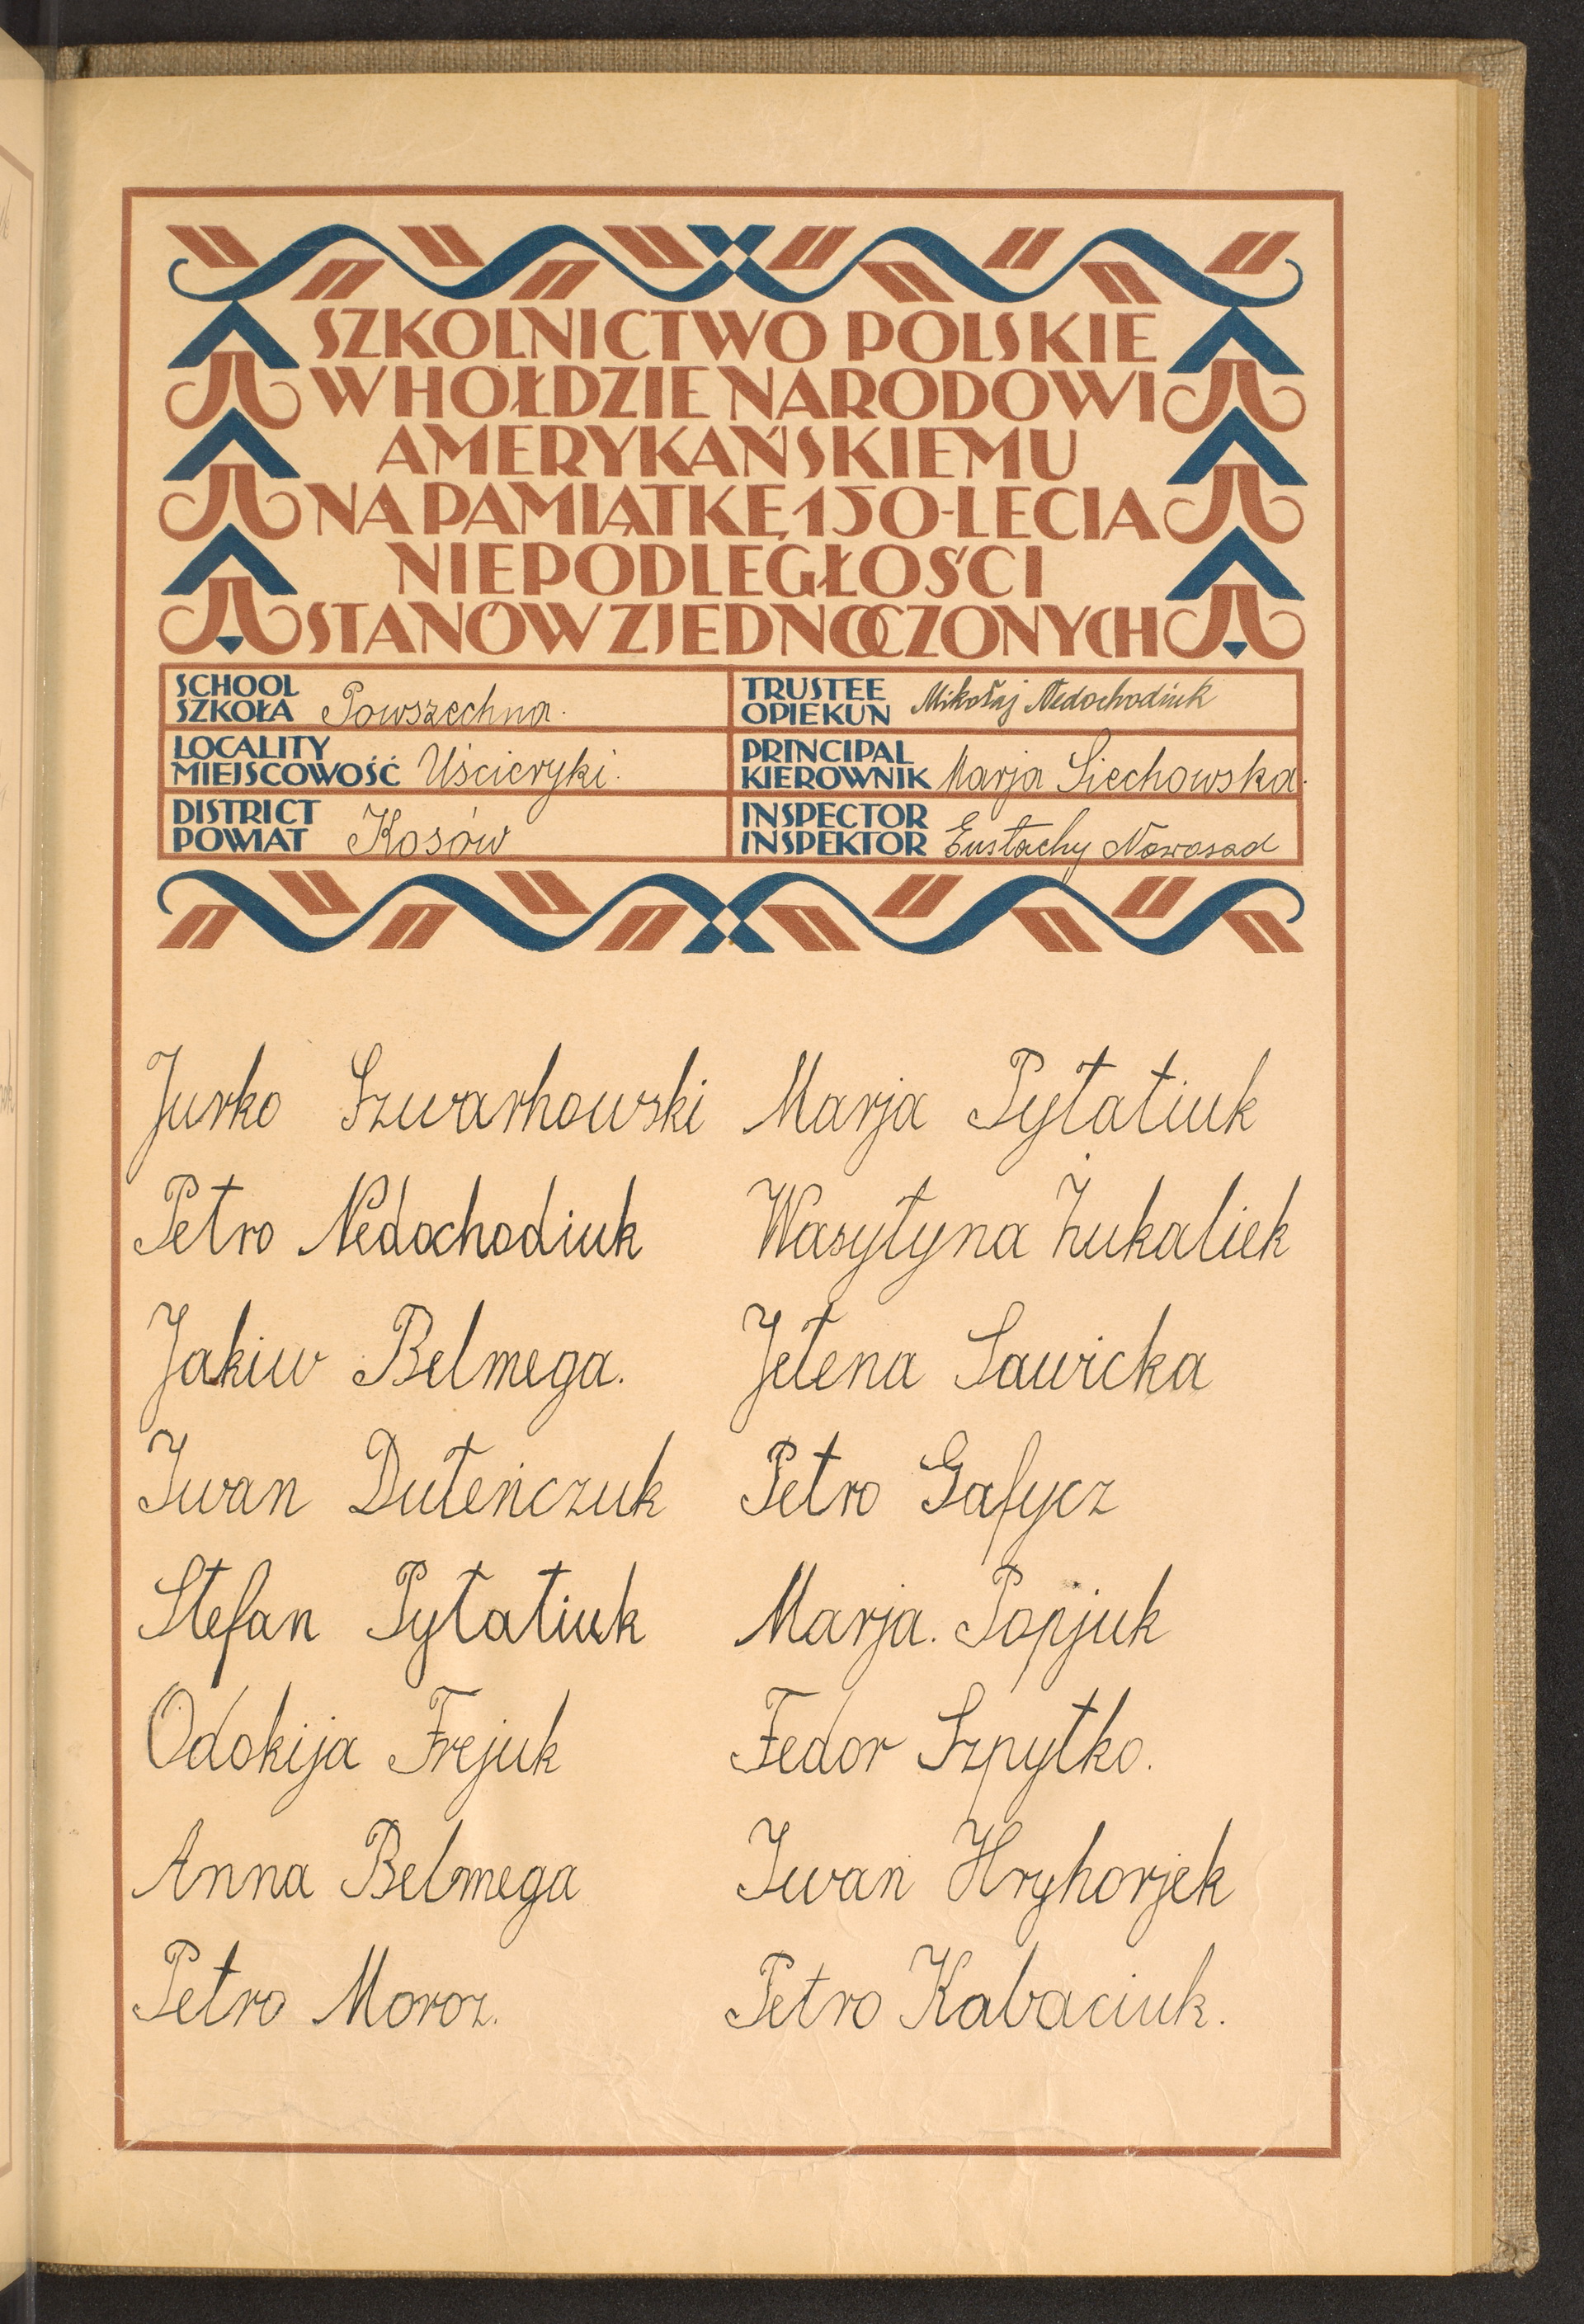 SZKOLNICTWO POLSKIE
W HOŁDZIE NARODOWI
AMERYKAŃSKIEMU
NA PAMIĄTKĘ 150-LECIA
NIEPODLEGŁOŚCI
STANÓW ZJEDNOCZONYCH
SCHOOL
SZKOŁA Powszechna.
TRUSTEE
OPIEKUN Mikołaj Nedochodiuk
LOCALITY
MIEJSCOWOŚĆ Uścieryki.
PRINCIPAL
KIEROWNIK Marja Siechowska.
DISTRICT
POWIAT Kosów
INSPECTOR
INSPEKTOR Eustachy Nowosad
Jurko Szwarhowski
Marja Pyłatiuk
Petro Nedochodiuk
Wasyłyna Żukaliek
Jakiw Belmega.
Jełena Sawicka
Iwan Dułeńczuk
Petro Gafycz
Stefan Pyłatiuk
Marja. Popjuk
Odokija Frejuk
Fedor Szpytko.
Anna Belmega
Iwan Hryhorjek
Petro Moroz.
Petro Kabaciuk.